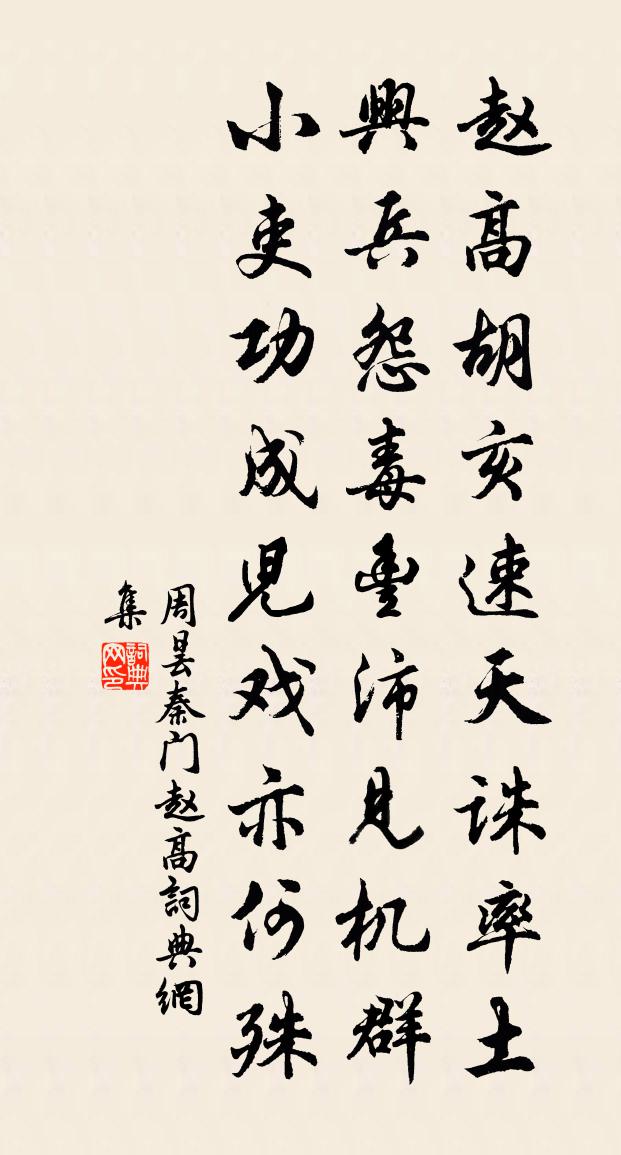 赵高胡亥速天诛率土
興兵怨毒豊沛見机群
小吏功成児戏亦何殊
周昙秦门赵高詞典網
集
詞典网印